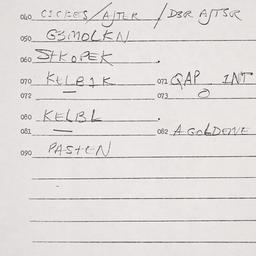 040 CICKES/AJTER /DBR AJTSR
050 GSMOLKN
060 STKOPEK .
070 KELBIK 071 QAP INT
072 — 073 0
080 KELBL .
081 — 082 AGOLDENE
090 PASTEN